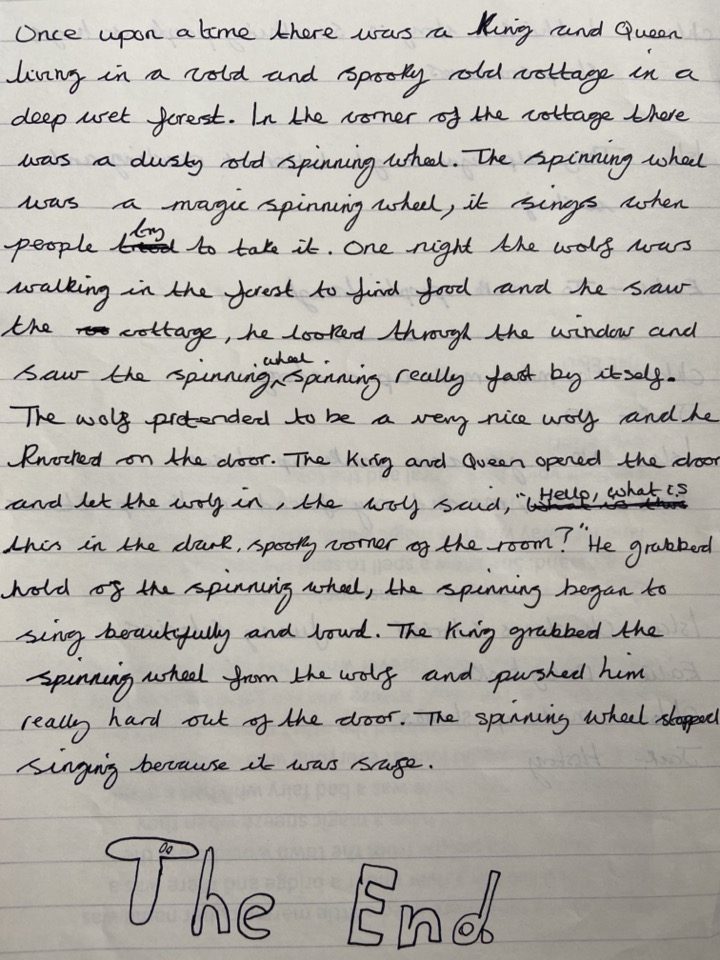 Once upon a time there was a King and Queen
living in a cold and spooky old cottage in a
deep wet forest. In the corner of the cottage there
was a dusty old spinning wheel. The spinning wheel
was a magic spinning wheel, it sings when
people try to take it. One night the wolf was
walking in the forest to find food and he saw
the cottage, he looked through the window and
saw the spinning wheel spinning really fast by itself.
The wolf pretended to be a very nice wolf and he
knocked on the door. The King and Queen opened the door
and let the wolf in, the wolf said, "Hello, what is
this in the dark, spooky corner of the room?" He grabbed
hold of the spinning wheel, the spinning began to
sing beautifully and loud. The King grabbed the
spinning wheel from the wolf and pushed him
really hard out of the door. The spinning wheel stopped
singing because it was safe.
The End.